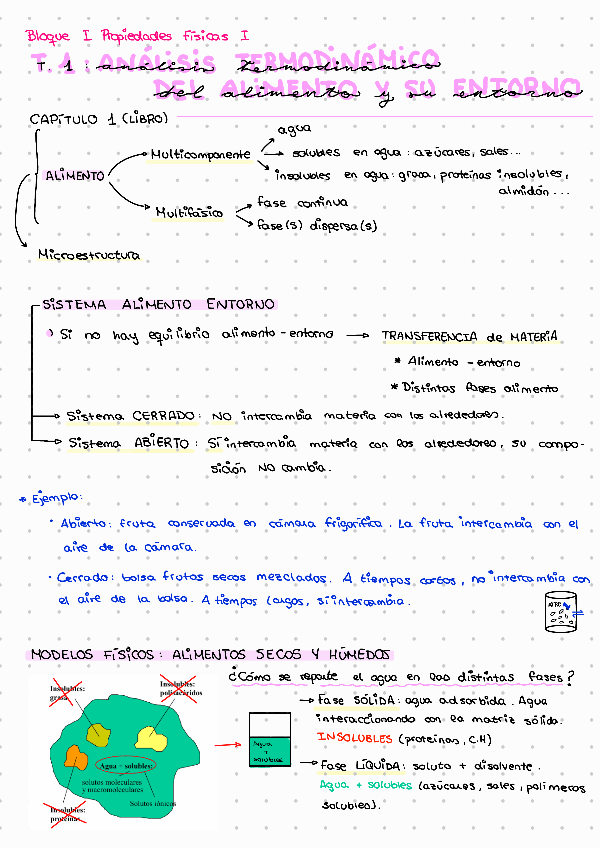 Bloque I Propiedades Físicas I
T. 1: ANÁLISIS TERMODINÁMICO
DEL ALIMENTO Y SU ENTORNO
CAPÍTULO 1 (LIBRO)
ALIMENTO
Multicomponente
agua
solubles en agua: azúcares, sales...
insolubles en agua: grasa, proteínas insolubles,
almidón...
Multifásico
fase continua
fase(s) dispersa(s)
Microestructura
SISTEMA ALIMENTO ENTORNO
Si no hay equilibrio alimento-entorno → TRANSFERENCIA de MATERIA
* Alimento - entorno
* Distintas fases alimento
Sistema CERRADO: NO intercambia materia con los alrededores.
Sistema ABIERTO: SÍ intercambia materia con los alrededores, su compo-
sición NO cambia.
* Ejemplo:
· Abierto: fruta conservada en cámara frigorífica. La fruta intercambia con el
aire de la cámara.
· Cerrado: bolsa frutos secos mezclados. A tiempos cortos, no intercambia con
el aire de la bolsa. A tiempos largos, sí intercambia.
MODELOS FÍSICOS: ALIMENTOS SECOS Y HÚMEDOS
¿Cómo se reparte el agua en las distintas fases?
Insolubles:
grasa
Insolubles:
polisacáridos
Agua + solubles:
solutos moleculares
y macromoleculares
Solutos iónicos
Insolubles:
proteínas
Agua
+
solubles
Fase SÓLIDA: agua adsorbida. Agua
interaccionando con la matriz sólida.
INSOLUBLES (proteínas, C.H)
Fase LÍQUIDA: soluto + disolvente.
Agua + solubles (azúcares, sales, polímeros
solubles).